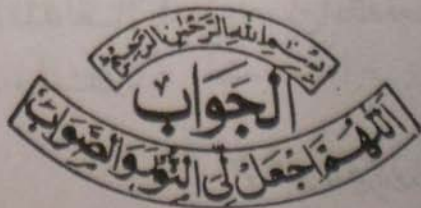 بِسْمِ اللهِ الرَّحْمٰنِ الرَّحِیْمِ
اَلْجَوَابُ
اَللّٰهُمَّ اجْعَلْ لِّیَ النُّوْرَ وَالصَّوَابَ